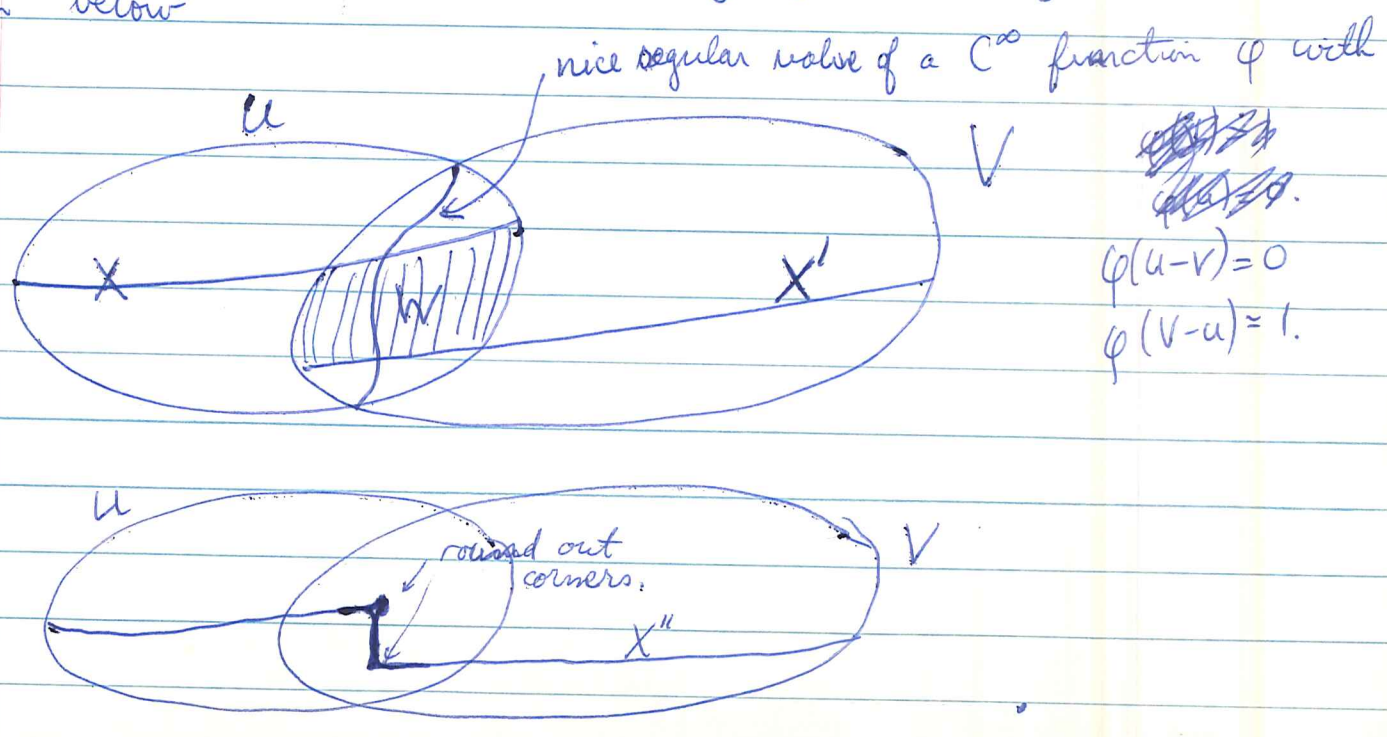 below
nice regular value of a C^∞ function φ with
U
V
X
W
X'
φ(U-V)=0
φ(V-U)=1.
U
round out
corners.
V
X"